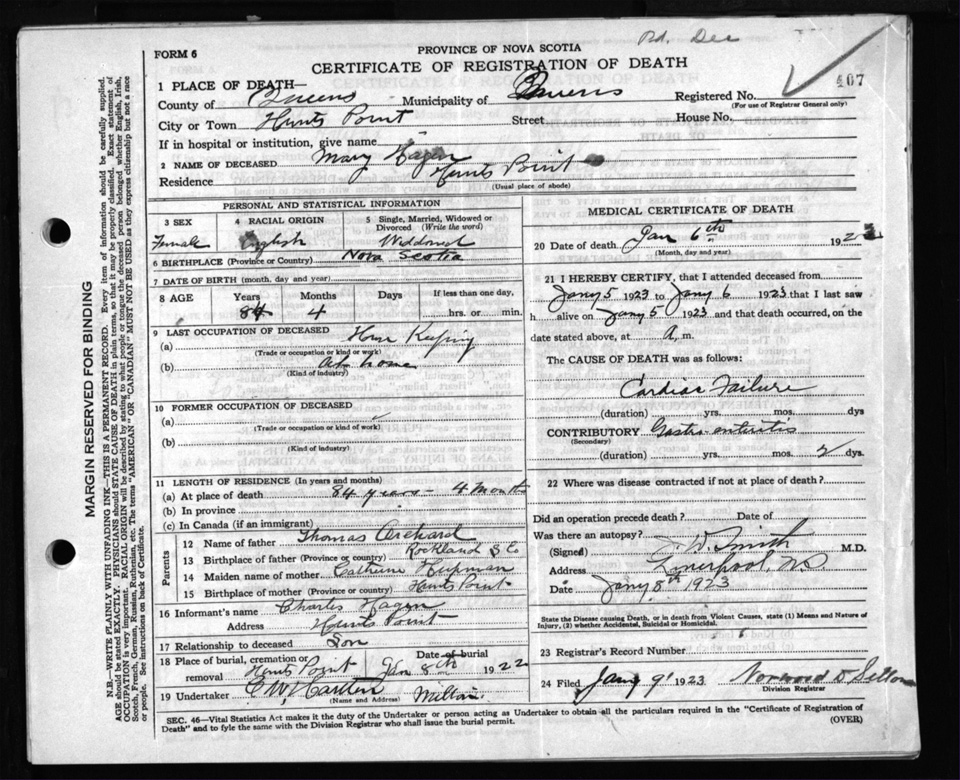 Rd. Dec
FORM 6
PROVINCE OF NOVA SCOTIA
CERTIFICATE OF REGISTRATION OF DEATH
407
1 PLACE OF DEATH—
County of Queens Municipality of Queens Registered No.
(For use of Registrar General only)
City or Town Hunts Point Street House No.
If in hospital or institution, give name
2 NAME OF DECEASED Mary Hagen
Residence Hunts Point
(Usual place of abode)
PERSONAL AND STATISTICAL INFORMATION
3 SEX 4 RACIAL ORIGIN 5 Single, Married, Widowed or Divorced (Write the word)
Female English Widdowed
6 BIRTHPLACE (Province or Country) Nova Scotia
7 DATE OF BIRTH (month, day and year)
8 AGE Years Months Days If less than one day,
84 4 hrs. or min.
9 LAST OCCUPATION OF DECEASED
(a) House Keeping
(Trade or occupation or kind or work)
(b) At home
(Kind of industry)
10 FORMER OCCUPATION OF DECEASED
(a)
(Trade or occupation or kind of work)
(b)
(Kind of industry)
11 LENGTH OF RESIDENCE (In years and months)
(a) At place of death 84 years - 4 Months
(b) In province
(c) In Canada (if an immigrant)
Parents
12 Name of father Thomas Orchard
13 Birthplace of father (Province or country) Rockland S Co
14 Maiden name of mother Cathrine
15 Birthplace of mother (Province or country) Hunts Point
16 Informant's name Charles Hagen
Address Hunts Point
17 Relationship to deceased Son
18 Place of burial, cremation or removal Hunts Point Date of burial Jan 8th 1922
19 Undertaker E W Milton
(Name and Address)
MEDICAL CERTIFICATE OF DEATH
20 Date of death Jan 6th 192
(Month, day and year)
21 I HEREBY CERTIFY, that I attended deceased from
Jany 5 1923 to Jany 6 1923 that I last saw
h alive on Jany 5 1923 and that death occurred, on the
date stated above, at A, m.
The CAUSE OF DEATH was as follows:
Cardiac Failure
(duration) yrs. mos. dys
CONTRIBUTORY Gastro enteritis
(Secondary)
(duration) yrs. mos. 2 dys.
22 Where was disease contracted if not at place of death?
Did an operation precede death? Date of
Was there an autopsy?
(Signed) J. W. Smith M.D.
Address Liverpool, NS
Date Jany 8th 1923
State the Disease causing Death, or in death from Violent Causes, state (1) Means and Nature of
Injury, (2) whether Accidental, Suicidal or Homicidal.
23 Registrar's Record Number
24 Filed Jany 9 1923
Division Registrar
SEC. 46—Vital Statistics Act makes it the duty of the Undertaker or person acting as Undertaker to obtain all the particulars required in the "Certificate of Registration of
Death" and to fyle the same with the Division Registrar who shall issue the burial permit.
(OVER)
MARGIN RESERVED FOR BINDING
N.B.—WRITE PLAINLY WITH UNFADING INK—THIS IS A PERMANENT RECORD. Every item of information should be carefully supplied.
AGE should be stated EXACTLY. PHYSICIANS should STATE CAUSE OF DEATH in plain terms, so that it may be properly classified. Exact statement of
OCCUPATION is very important. RACIAL ORIGIN will be described by stating to what people or tongue the deceased person belonged whether English, Irish,
Scotch, French, German, Russian, Ruthenian, etc. The terms "AMERICAN" OR "CANADIAN" MUST NOT BE USED as they express citizenship but not a race
or people. See instructions on back of Certificate.